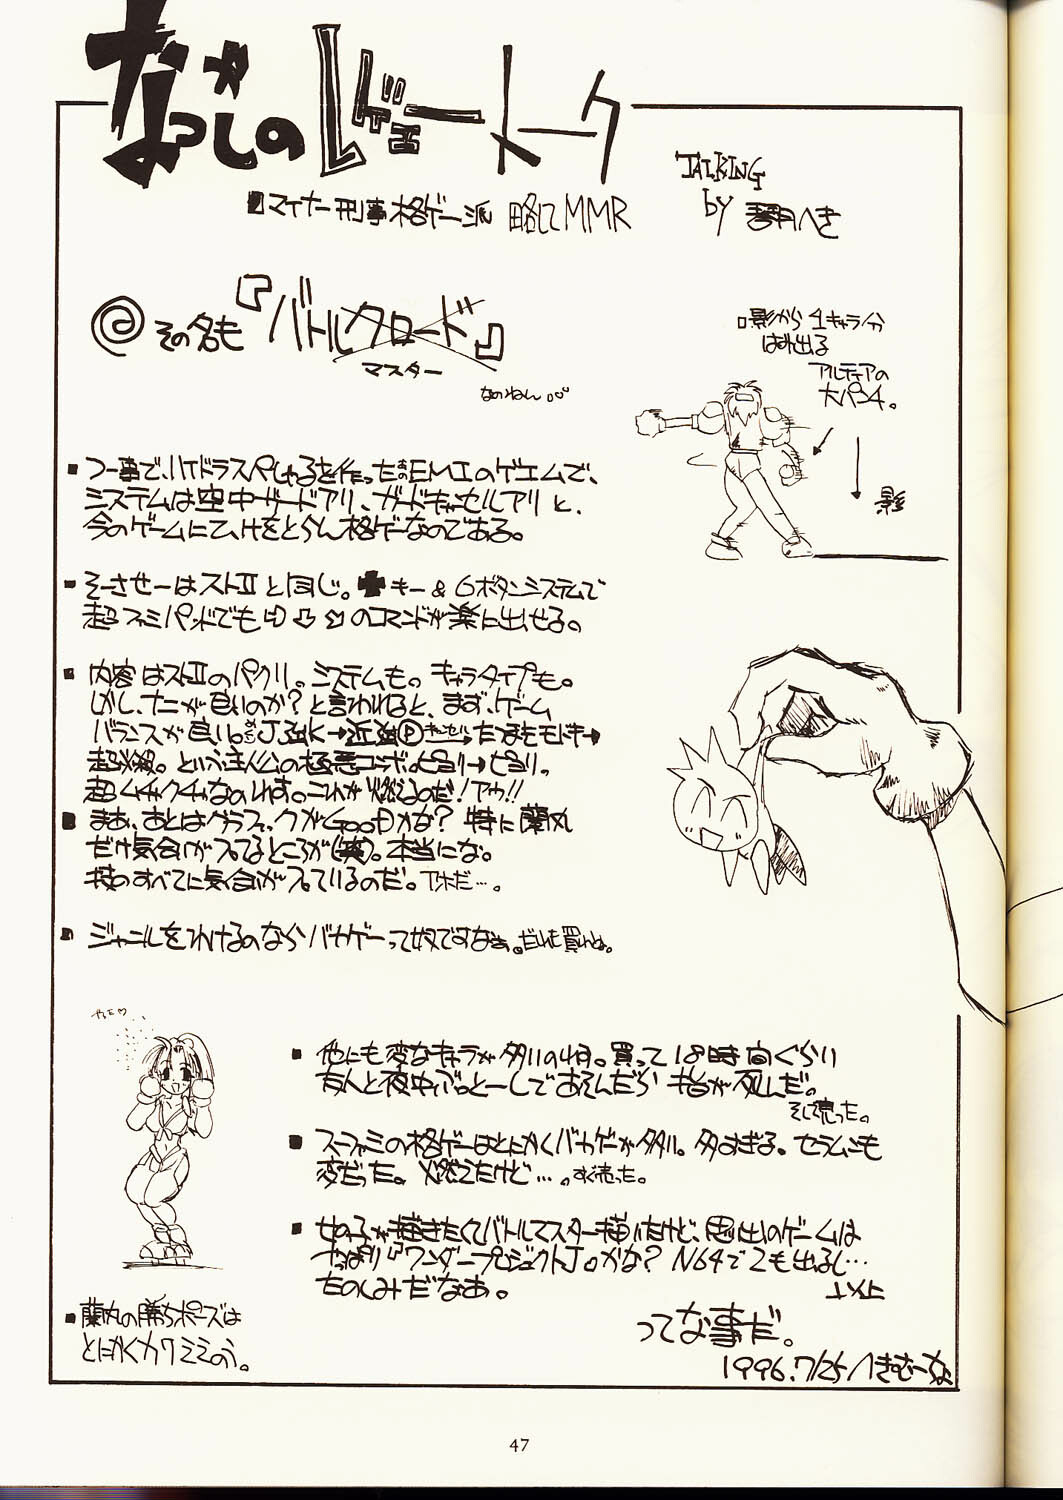 なつかしのレヴュートーク
■マイナー刑事格ゲー派 略してMMR
TALKING
by 琴月へき
@その名も『バトルクロード』
マスター
なのねん。
□影から1キャラ分
はみ出る
アルティアの
大パンチ。
影
■つー事で、ハイドラスペシャルを作ったあのEMIのゲエムで、
システムは空中ガードアリ、ガードキャンセルアリと、
今のゲームにひけをとらん格ゲーなのである。
■そーさせーはストⅡと同じ。✚キー&6ボタンシステムで
超ファミパッドでも⇨⇩⬂のコマンドが楽に出せる。
■内容はストⅡのパクリ。システムも。キャラタイプも。
しかし、ナニが良いのか?と言われると、まず、ゲーム
バランスが良い。J強K→近強Ⓟキャンセル→たつまきモドキ→
超必殺。という主人公の極悪コンボ。ピヨリ→ピヨリ。
超ムチャクチャなのれす。これが燃えるのだ!アウ!!
■まあ、あとはグラフィックがGooDかな?特に蘭丸
だけ気合いが入ってるところが(笑)。本当にな。
技のすべてに気合が入っているのだ。アホだ…。
■ジャンルをわけるのならバカゲーって奴ですなぁ。だれも買わん。
やった♡
■他にも変なキャラが多いのね。買って18時間ぐらい
友人と夜中ぶっとーしであそんだら指が死んだ。
そして売った。
■スーファミの格ゲーはとにかくバカゲーが多い。多すぎる。セラムンも
変だった。燃えたけど…。すぐ売った。
■女の子が描きたくてバトルマスター描いたけど、思い出のゲームは
やっぱり『ワンダープロジェクトJ』かな?N64で2も出るし…
たのしみだなあ。
以上
■蘭丸の勝ちポーズは
とにかくカワミミのう。
ってな事だ。
1996.7/25/へきむーな
47